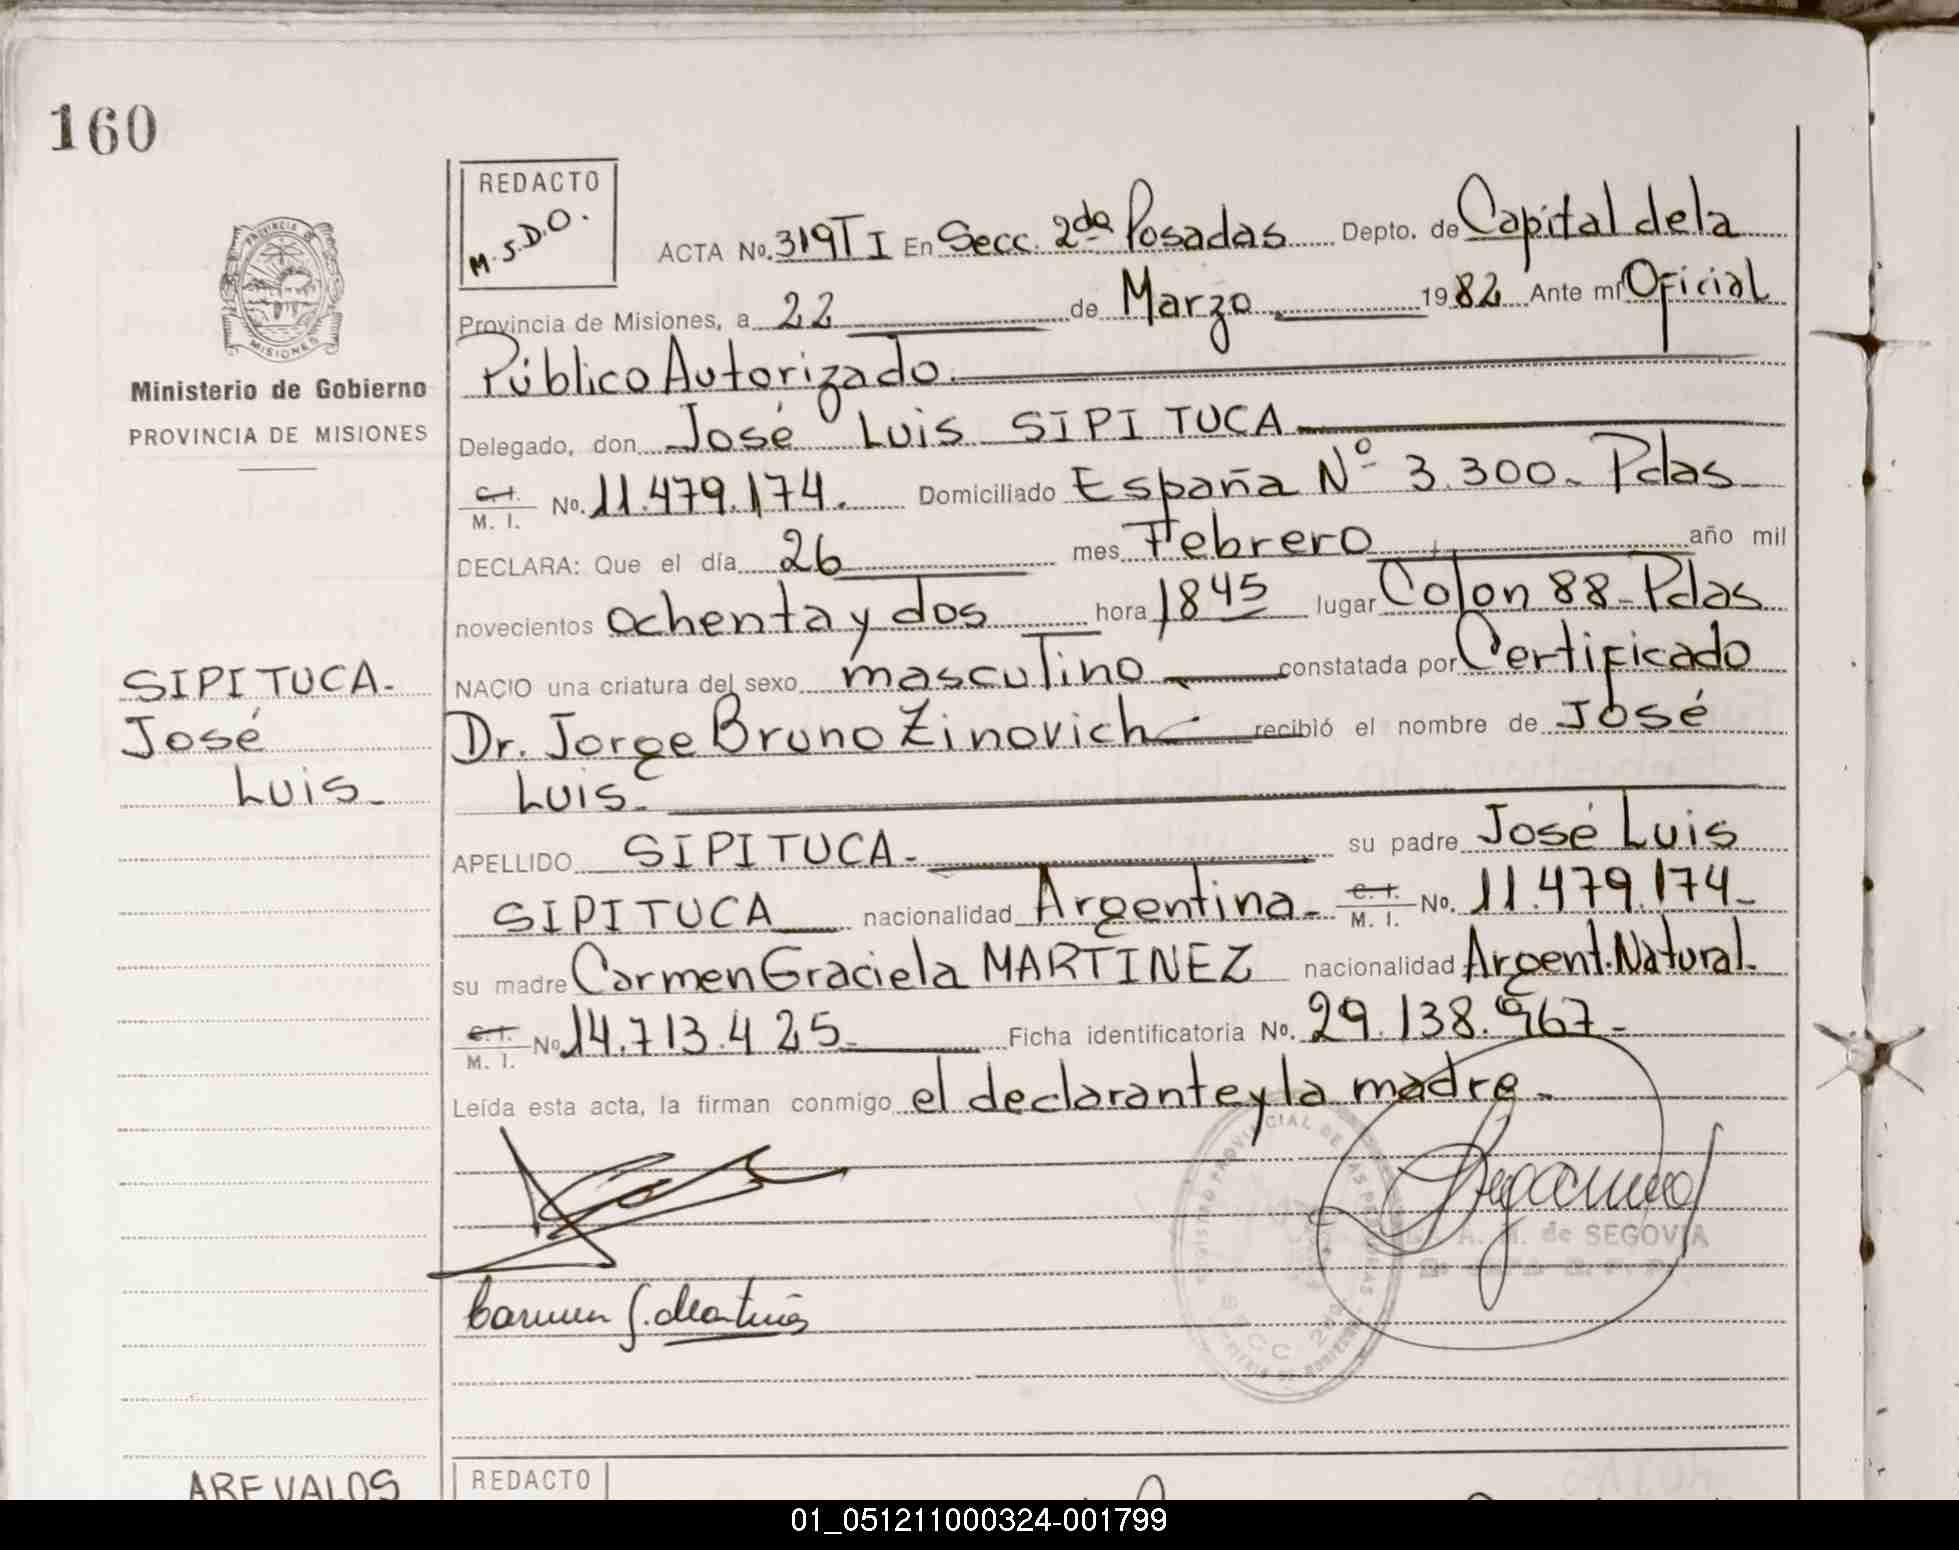 160
REDACTO
M.S.D.O.
ACTA No. 319 T I En Secc. 2da Posadas Depto. de Capital de la
Provincia de Misiones, a 22 de Marzo 1982 Ante mí Oficial
Público Autorizado.
Delegado, don José Luis SIPITUCA
C. I. M. I. No. 11.479.174. Domiciliado España Nº 3.300- Pdas
DECLARA: Que el día 26 mes Febrero año mil
novecientos ochenta y dos hora 1845 lugar Colon 88- Pdas
NACIO una criatura del sexo masculino constatada por Certificado
Dr. Jorge Bruno Zinovich recibió el nombre de José
Luis-
APELLIDO SIPITUCA- su padre José Luis
SIPITUCA nacionalidad Argentina- C. I. M. I. No. 11.479.174-
su madre Carmen Graciela MARTINEZ nacionalidad Argent. Natural-
C. I. M. I. No 14.713.425- Ficha identificatoria No. 29.138.967-
Leída esta acta, la firman conmigo el declarante y la madre-
A. M. de SEGOVIA
Carmen G. Martinez
PROVINCIA DE
MISIONES
Ministerio de Gobierno
PROVINCIA DE MISIONES
SIPITUCA-
José
Luis-
AREVALOS
REDACTO
01_051211000324-001799